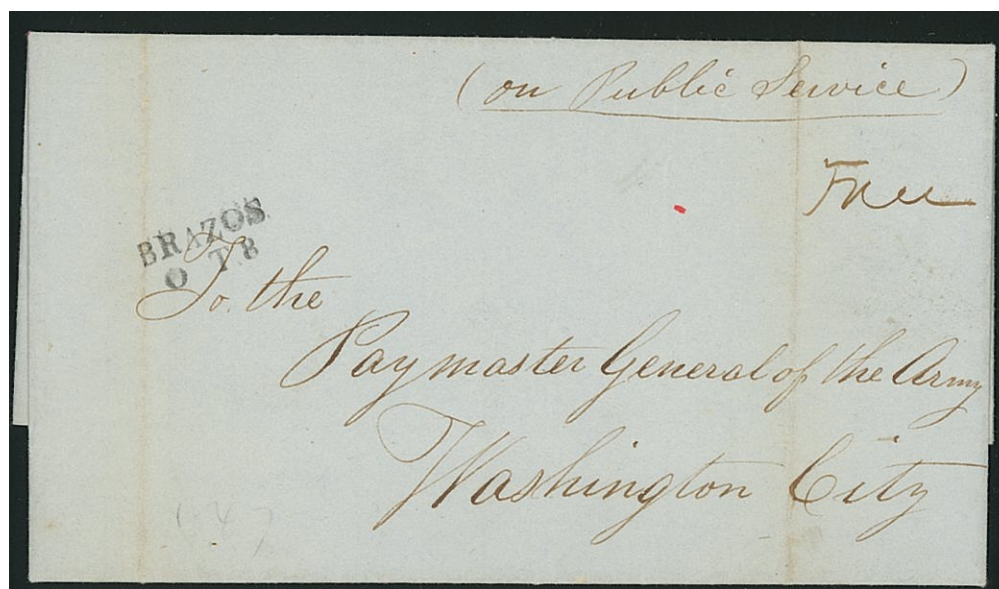 (on Public Service)
Free
BRAZOS
O T.8
To the
Paymaster General of the Army
Washington City